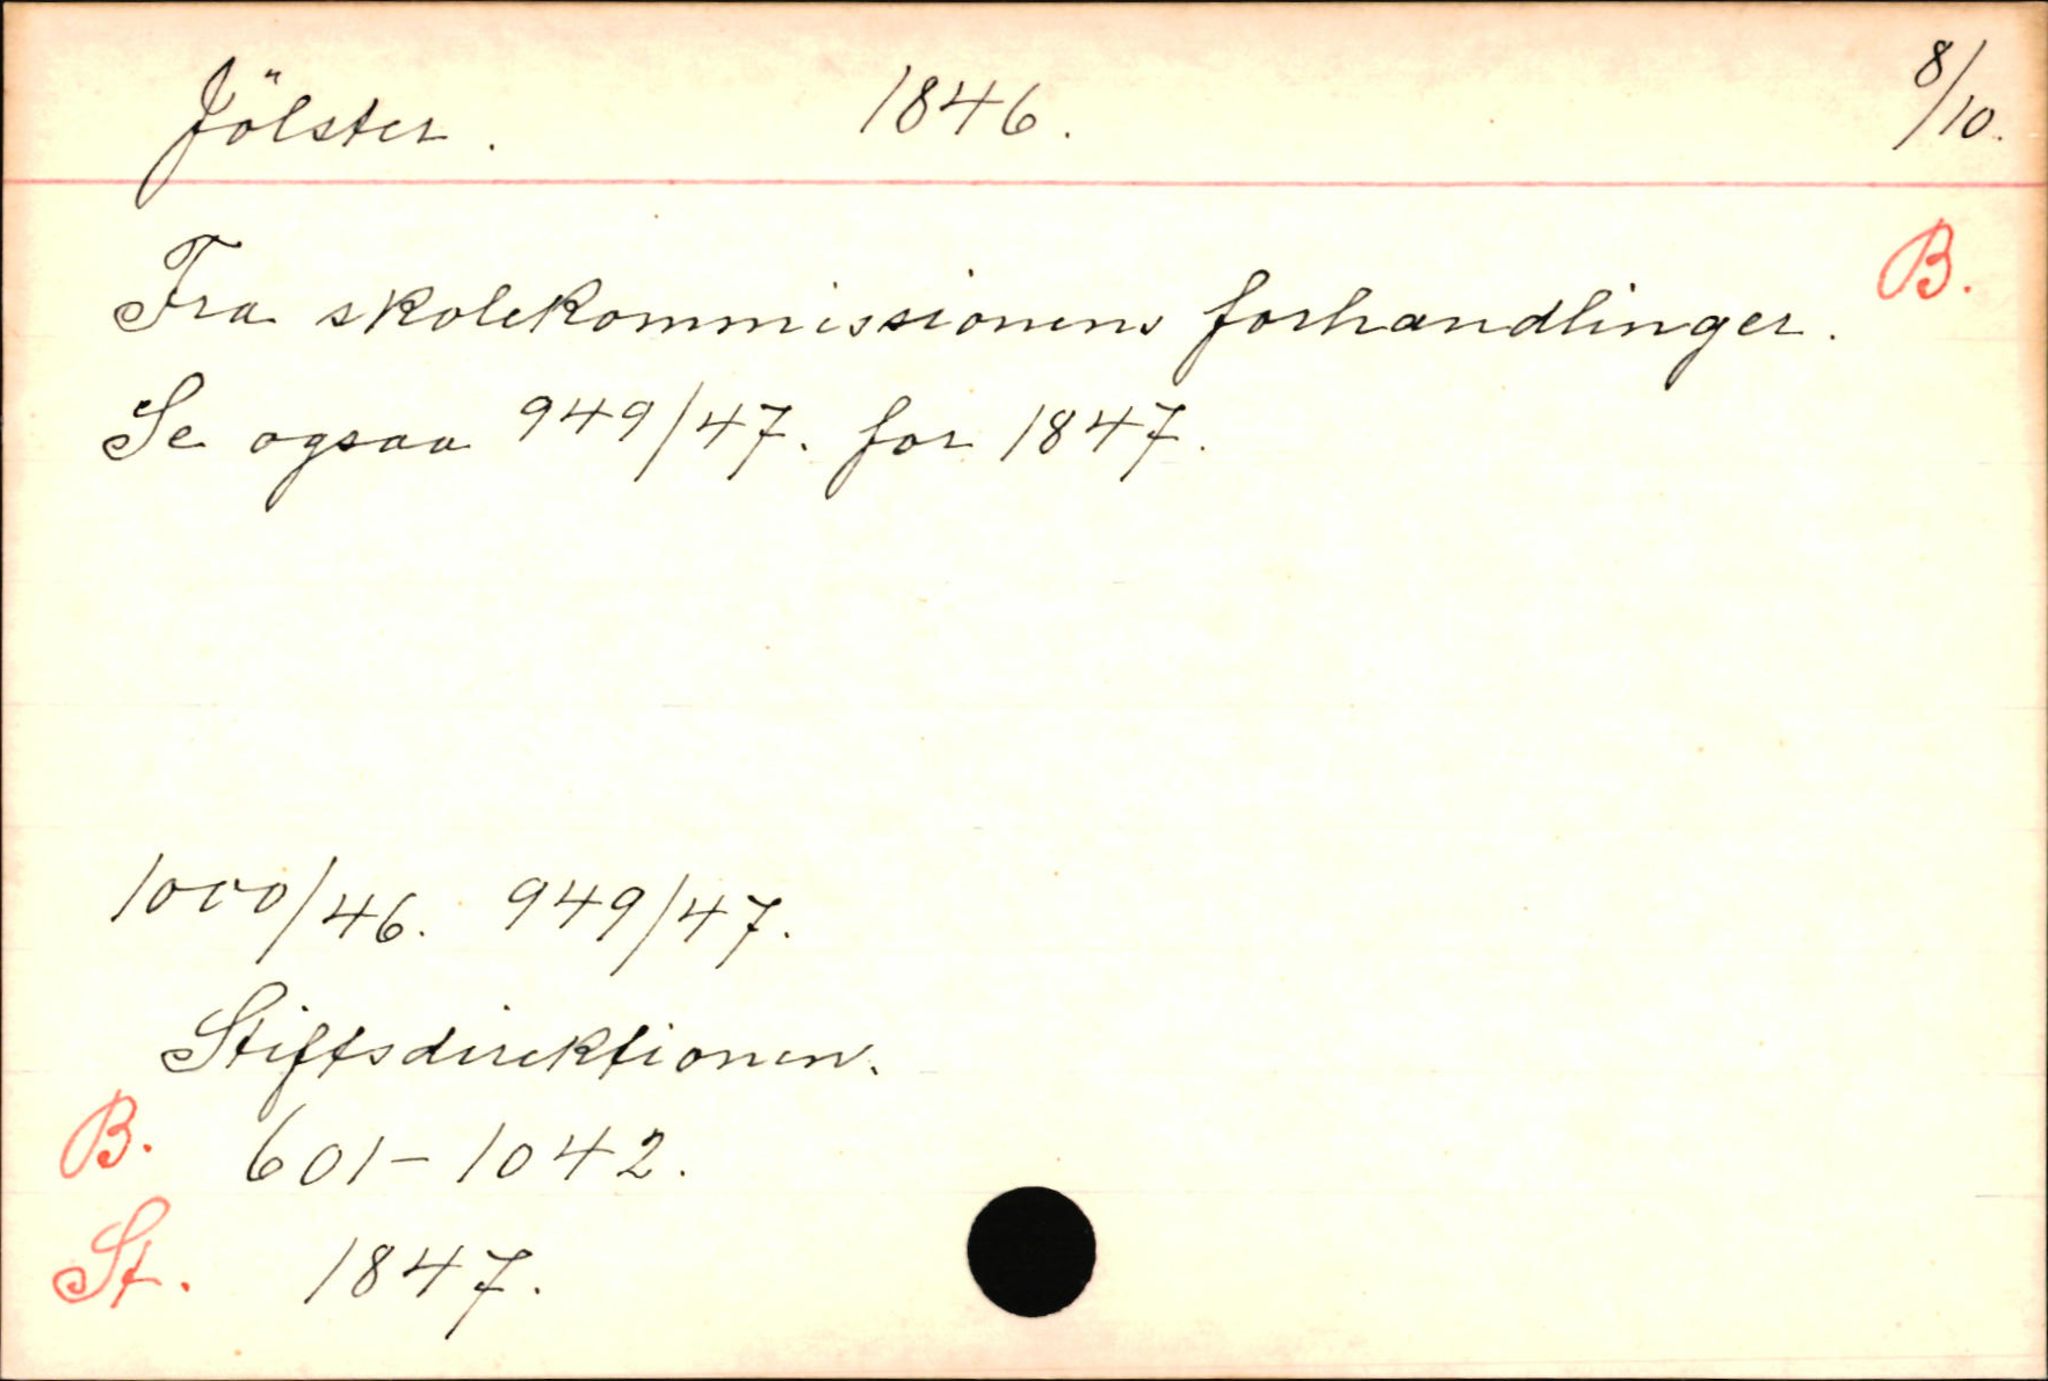 Jölster. 1846. 8/10.
B.
Fra skolekommissionens forhandlinger.
Se ogsaa 949/47. for 1847.
1000/46. 949/47.
Stiftsdirektionen.
B. 601-1042.
St. 1847.